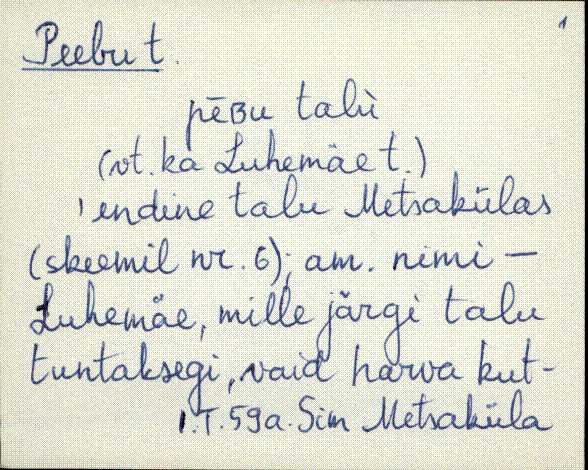 1
Peebu t.
pēʙu talù
(vt. ka Luhemäe t.)
'endine talu Metsakülas
(skeemil nr. 6); am. nimi —
Luhemäe, mille järgi talu
tuntaksegi, vaid harva kut-
I.T. 59a. Sim Metsaküla